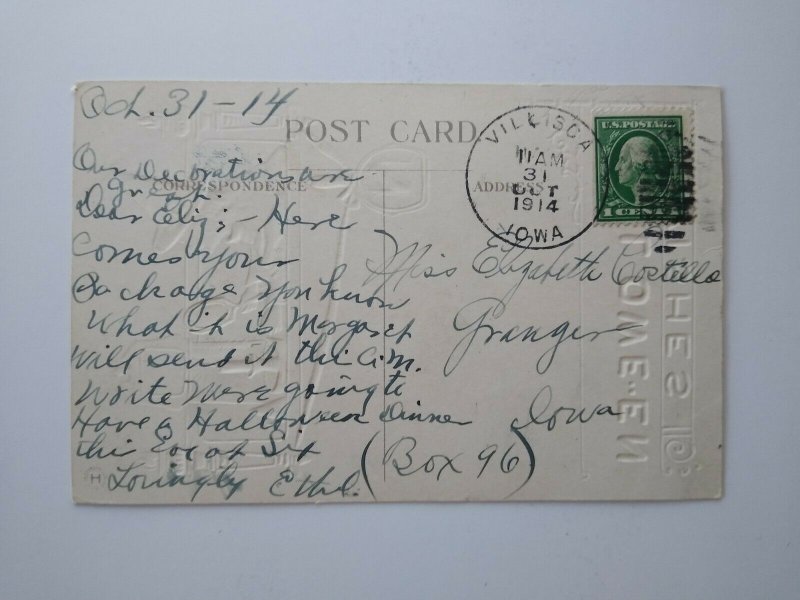 Oct. 31-14
POST CARD.
Our Decorations are
Great.
CORRESPONDENCE
ADDRESS
Dear Eliz; - Here
comes your
Package You know
What it is Margaret
Will send it this a.m.
Write Were going to
Have a Halloween Dinner
this Eve at Six
Lovingly Ethel.
VILLISCA
11 AM
31
OCT
1914
IOWA
U.S. POSTAGE
1 CENT 1
Miss Elizabeth Costello
Granger
Iowa
(Box 96)
H